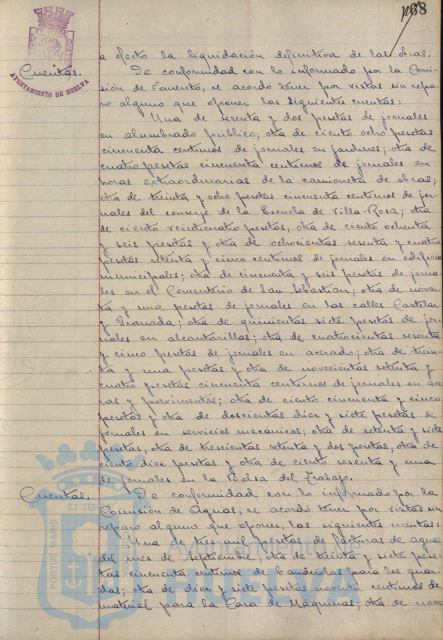 168
AYUNTAMIENTO DE HUELVA
a efecto la liquidación definitiva de las obras.
Cuentas.
De conformidad con lo informado por la Comi-
sión de Fomento, se acordó tener por vistas sin repa-
ro alguno que oponer las siguientes cuentas:
Una de setenta y dos pesetas de jornales
en alumbrado público; otra de ciento ocho pesetas
cincuenta centimos de jornales en jardines; otra de
cuatro pesetas cincuenta centimos de jornales en
horas extraordinarias de la camioneta de obras;
otra de treinta y ocho pesetas cincuenta centimos de jor-
nales del conserje de la Escuela de Villa-Rosa; otra
de ciento veinticuatro pesetas, otra de ciento ochenta
y seis pesetas y otra de ochocientas sesenta y cuatro
pesetas setenta y cinco centimos de jornales en edificios
municipales; otra de cincuenta y seis pesetas de jorna-
les en el Cementerio de San Sebastian; otra de noven-
ta y una pesetas de jornales en las calles Castelar
y Granada; otra de quinientas siete pesetas de jor-
nales en alcantarillas; otra de cuatrocientas sesenta
y cinco pesetas de jornales en acerado; otra de trein-
ta y una pesetas y otra de novecientas setenta y
cuatro pesetas cincuenta centimos de jornales en ace-
ras y pavimentos; otra de ciento cincuenta y cinco
pesetas y otra de doscientas diez y siete pesetas de
jornales en servicios mecánicos; otra de setenta y siete
pesetas, otra de trescientas setenta y dos pesetas, otra de
ciento diez pesetas y otra de ciento sesenta y una
de jornales en la Bolsa del Trabajo.
Cuentas.
De conformidad con lo informado por la
Comisión de Aguas, se acordó tener por vistas sin
reparo alguno que oponer, las siguientes cuentas:
Una de tres mil pesetas de facturas de agua
del mes de septiembre; otra de treinta y siete pese-
tas cincuenta centimos de bandoleras para los guar-
das; otra de diez y siete pesetas noventa centimos de
material para la Casa de Máquinas; otra de nove
PORTUS MARIS
ET TERRAE
HUELVA